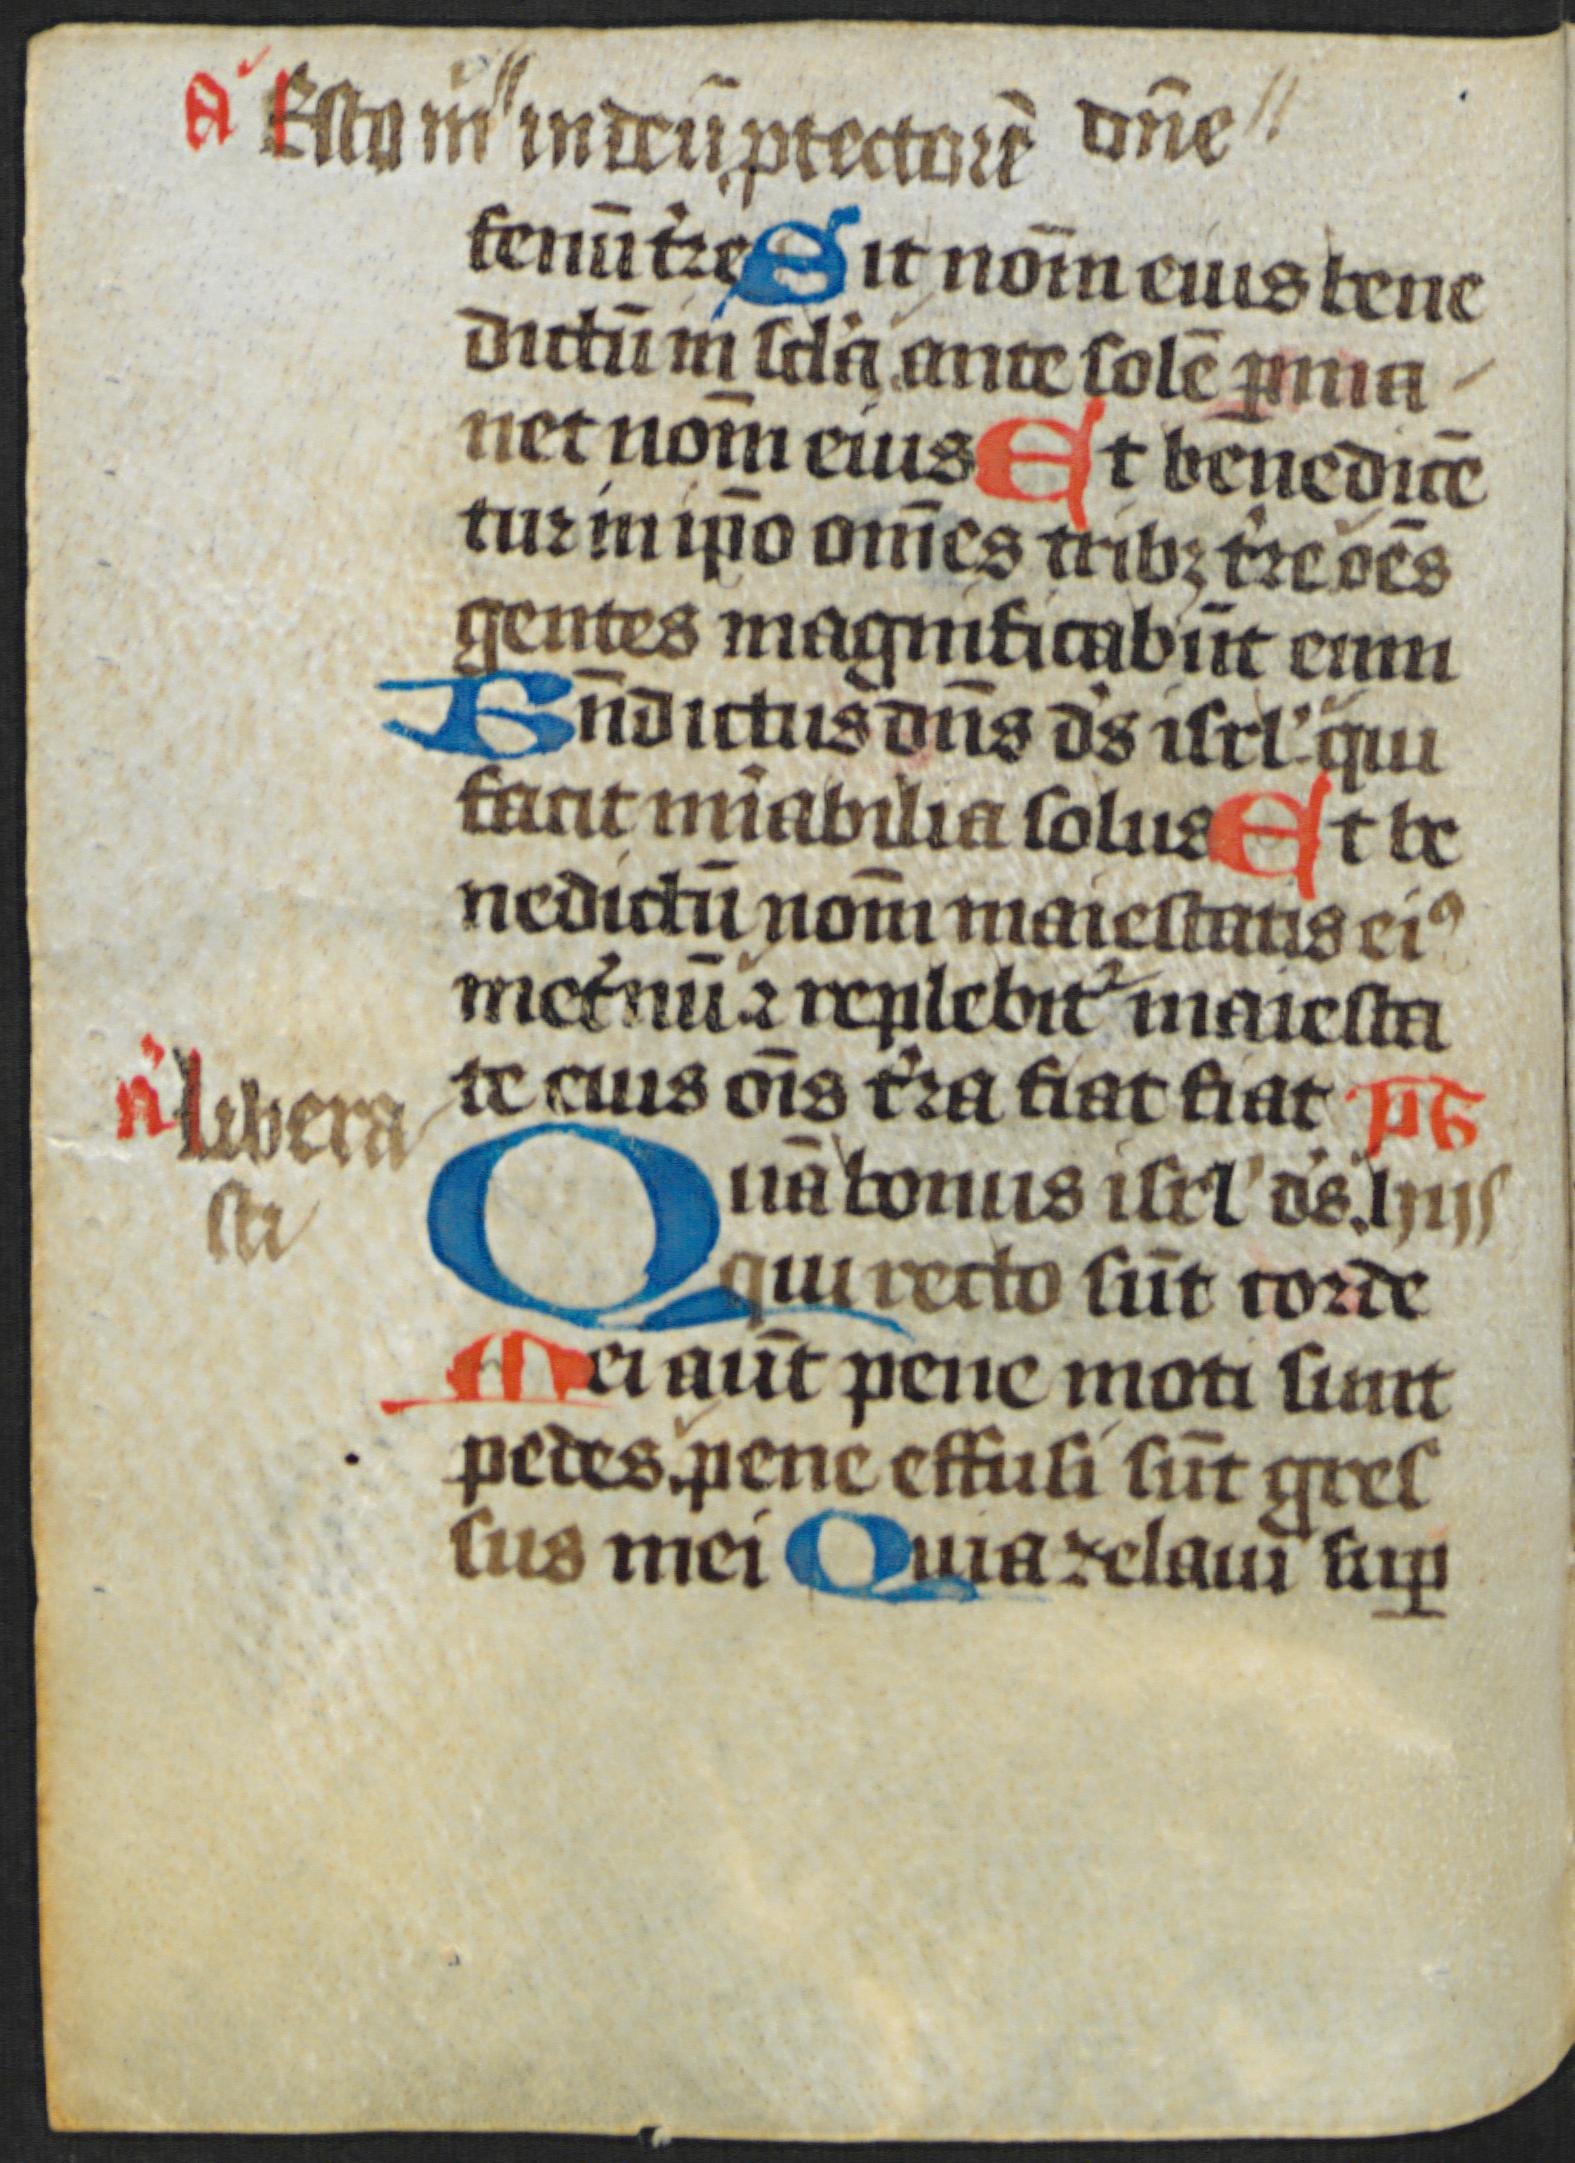 A Esto m in deū ptectorē dn̄e
fenū tr̄e Sit nom̄ eius bene
dictū in sc̄la ante solē ꝑma
net nom̄ eius Et benedicē
tur in ip̄o om̄es tribꝫ tr̄e oēs
gentes magnificabūt eum
Bn̄dictus dn̄s d̄s isrl̓ qui
facit mi̓abilia solus Et be
nedictū nom̄ maiestatis eiꝰ
inet̓nū ⁊ replebit᷑ maiesta
te eius oīs tr̓ra fiat fiat p̄s
A libera
sti
Quā bonus isrl̓ d̓s hijs
qui recto sūt corde
Mei aūt pene moti sunt
pedes pene effusi sūt gres
sus mei Quia zelaui suꝑ